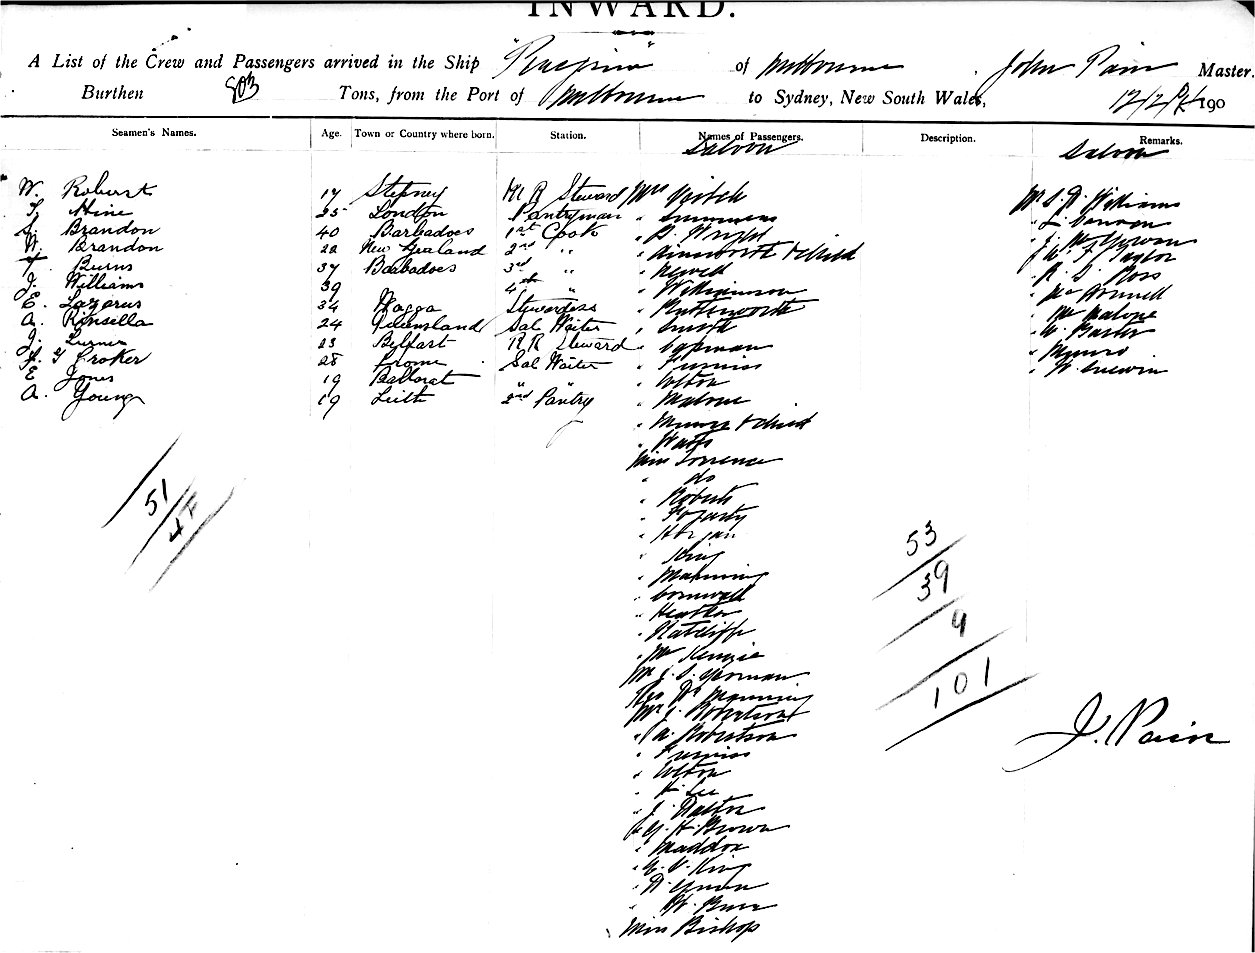 INWARD.
A List of the Crew and Passengers arrived in the Ship "Peregrine" of Melbourne, John Pain Master.
Burthen 803 Tons, from the Port of Melbourne to Sydney, New South Wales, 12/2/ 190
Seamen's Names. Age. Town or Country where born. Station. Names of Passengers. Description. Remarks.
Saloon Saloon
W. Roburst 17 Stepney R R Steward Mrs W. S. D. Williams
T. Hine 25 London Pantryman " Summers " L Vernon
S. Brandon 40 Barbadoes 1st Cook " B. Wright " J.
W. Brandon 22 New Zealand 2nd " " Ainsworth & Child " W. F. Taylor
F. Burns 37 Barbadoes 3rd " " Newell " R. S. Ross
J. Williams 39 4th " " Wilkinson " Mc
E. Lazarus 34 Wagga Stewardess " Butterworth " Mc Malone
A. Kinsella 24 Queensland Sal Waiter " Smith " W. Baster
J. Turner 23 Belfast R R Steward " Copman " Munro
H. G Croker 28 Frome Sal Waiter " Furniss " W.
E Jones 19 Ballarat " " " Upton
A. Young 19 Leith 2nd Pantry " Malone
" Munro & Child
" Watts
Miss Torrence
" do
" Roberts
" Fogarty
" Horgan
" King
" Manning
" Cornwall
" Heather
" Ratcliffe
" Mc Kenzie
Mr J. S. Yorman
Rev Dr Manning
Mr J. Robertson
" A. Robertson
" Furniss
" Upton
" H. Lee
" J. Walton
" G. H. Brown
" Maddox
" C. V. King
" D.
" W. Burr
Miss Bishop
51
44
53
39
9
101
J. Pain